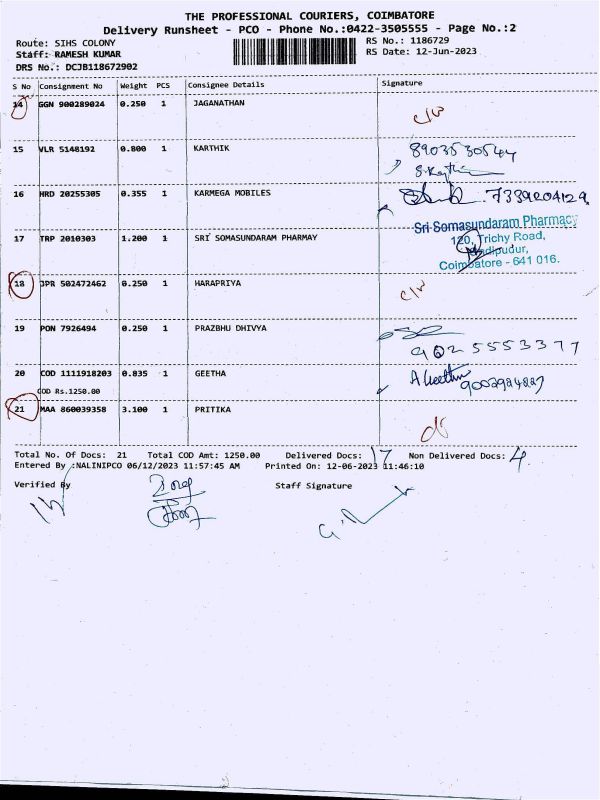 THE PROFESSIONAL COURIERS, COIMBATORE
Delivery Runsheet - PCO - Phone No.:0422-3505555 - Page No.:2
Route: SIHS COLONY RS No.: 1186729
Staff: RAMESH KUMAR RS Date: 12-Jun-2023
DRS No.: DCJB118672902
S No Consignment No Weight PCS Consignee Details Signature
14 GGN 900289024 0.250 1 JAGANATHAN
15 VLR 5148192 0.800 1 KARTHIK 8903530544
16 HRD 20255305 0.355 1 KARMEGA MOBILES 7339204129
17 TRP 2010303 1.200 1 SRI SOMASUNDARAM PHARMAY
Sri Somasundaram Pharmacy
120, Trichy Road,
Coimbatore - 641 016.
18 JPR 502472462 0.250 1 HARAPRIYA
19 PON 7926494 0.250 1 PRAZBHU DHIVYA
20 COD 1111918203 0.835 1 GEETHA A Geetha
COD Rs.1250.00
21 MAA 860039358 3.100 1 PRITIKA
Total No. Of Docs: 21 Total COD Amt: 1250.00 Delivered Docs: 17 Non Delivered Docs: 4
Entered By :NALINIPCO 06/12/2023 11:57:45 AM Printed On: 12-06-2023 11:46:10
Verified By Staff Signature